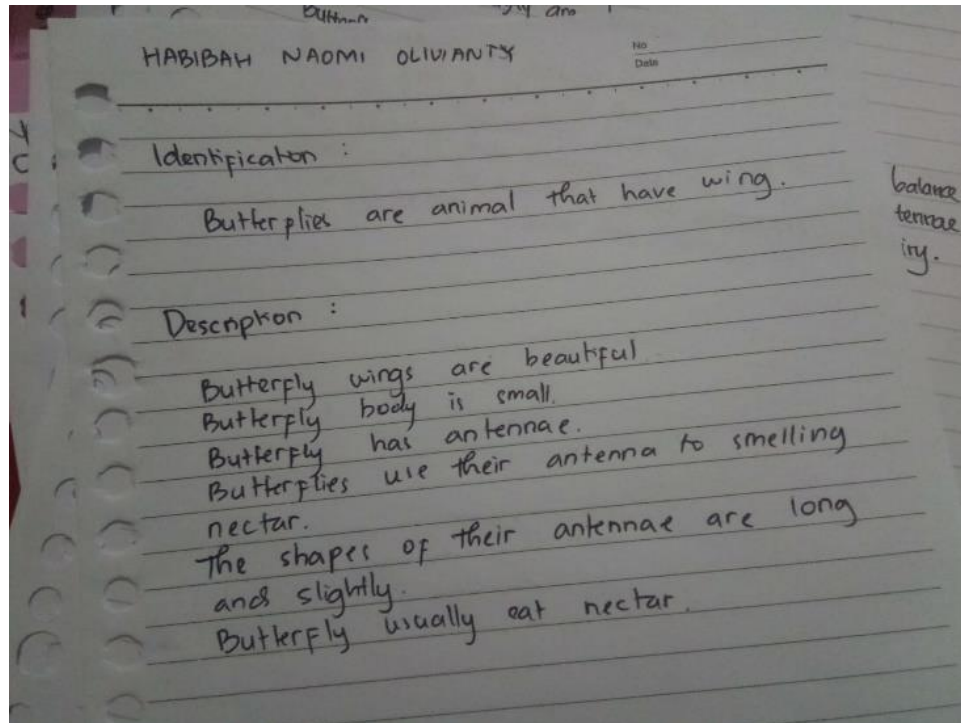 HABIBAH NAOMI OLIVIANTY
No
Date
Identification :
Butterflies are animal that have wing.
Description :
Butterfly wings are beautiful
Butterfly body is small.
Butterfly has antennae.
Butterflies use their antenna to smelling
nectar.
The shapes of their antennae are long
and slightly.
Butterfly usually eat nectar.
balance
tennae
iry.